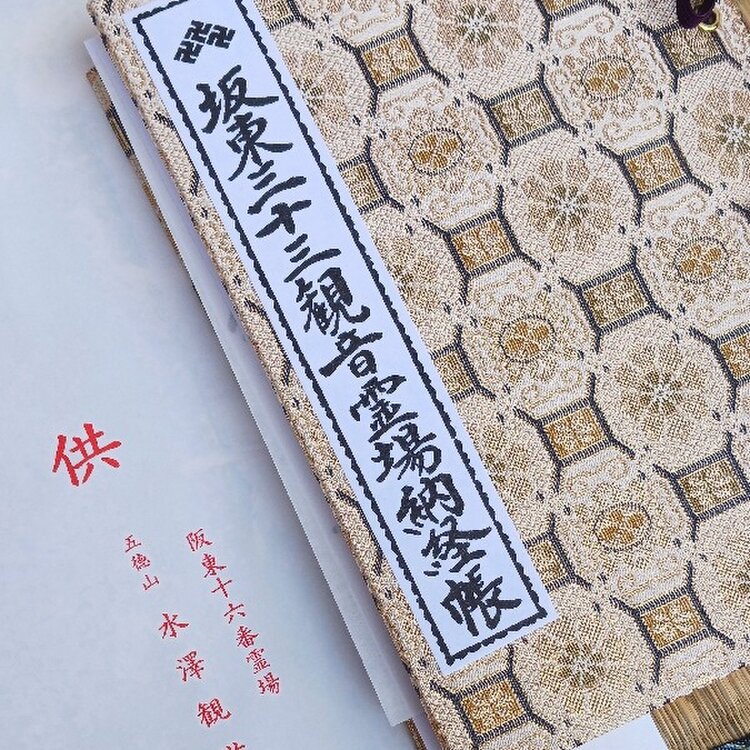 卍卍卍
坂東三十三観音霊場納経帳
供
阪東十六番霊場
五徳山
水澤観